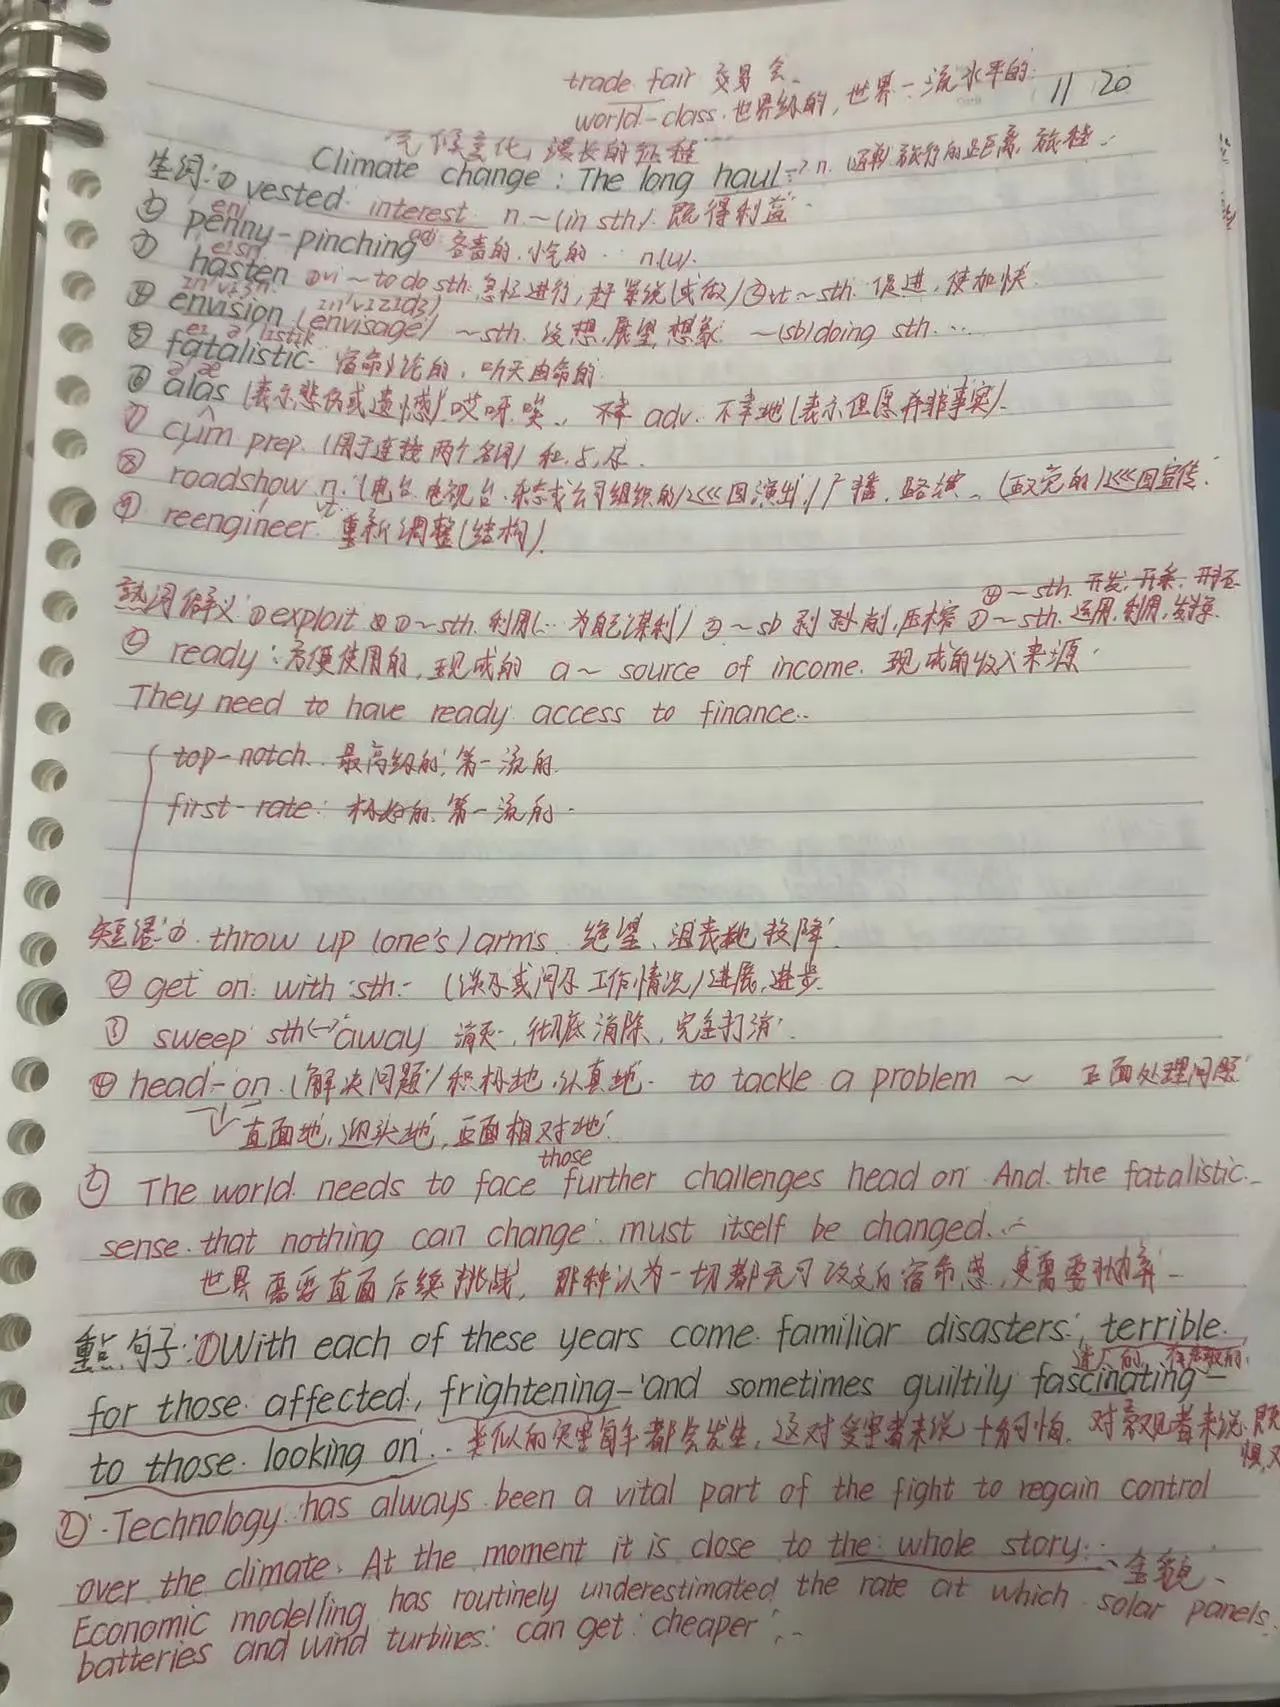 trade fair 交易会
world-class 世界级的, 世界一流水平的
11 20
气候变化, 漫长的征程
Climate change : The long haul → n. 旅行的距离, 旅程
生词: ① vested interest n. ~ (in sth) 既得利益
② penny-pinching adj 吝啬的, 小气的 n.(u).
③ hasten ① vi ~ to do sth. 急忙进行, 赶紧说(或做) ② vt ~ sth. 促进, 使加快
④ envision (envisage) ~ sth. 设想, 展望, 想象 ~ (sb) doing sth. ...
⑤ fatalistic 宿命论的, 听天由命的
⑥ alas (表示悲伤或遗憾) 哎呀, 唉, 不幸 adv. 不幸地 (表示但愿并非事实).
⑦ cum prep. (用于连接两个名词) 和, 与, 及.
⑧ roadshow n. (电台、电视台、杂志或公司组织的) 巡回演出/广播, 路演, (政党的) 巡回宣传.
⑨ reengineer vt. 重新调整(结构).
熟词僻义: ① exploit ① ~ sth. 利用 (... 为自己谋利) ② ~ sb 剥削, 压榨 ③ ~ sth. 运用, 利用, 发挥
④ ~ sth. 开发, 开采, 开拓
② ready: 方便使用的, 现成的 a ~ source of income. 现成的收入来源
They need to have ready access to finance..
top-notch. 最高级的, 第一流的
first-rate: 极好的, 第一流的
短语: ① throw up (one's) arms 绝望、沮丧地投降
② get on with sth. (谈及或问及工作情况) 进展, 进步
③ sweep sth ↔ away 消灭, 彻底消除, 完全打消
④ head-on (解决问题) 积极地, 认真地 to tackle a problem ~ 正面处理问题
直面地, 迎头地, 正面相对地
those
② The world needs to face further challenges head on And the fatalistic
sense that nothing can change must itself be changed.
世界需要直面后续挑战, 那种认为一切都无可改变的宿命感, 更需要
重点句子: ① With each of these years come familiar disasters, terrible
迷人的,
for those affected, frightening - and sometimes guiltily fascinating -
to those looking on. 类似的灾害每年都会发生, 这对受害者来说十分可怕, 对旁观者来说, 既
惧, 又
② Technology has always been a vital part of the fight to regain control
over the climate. At the moment it is close to the whole story. 全貌
Economic modelling has routinely underestimated the rate at which solar panels,
batteries and wind turbines can get cheaper.